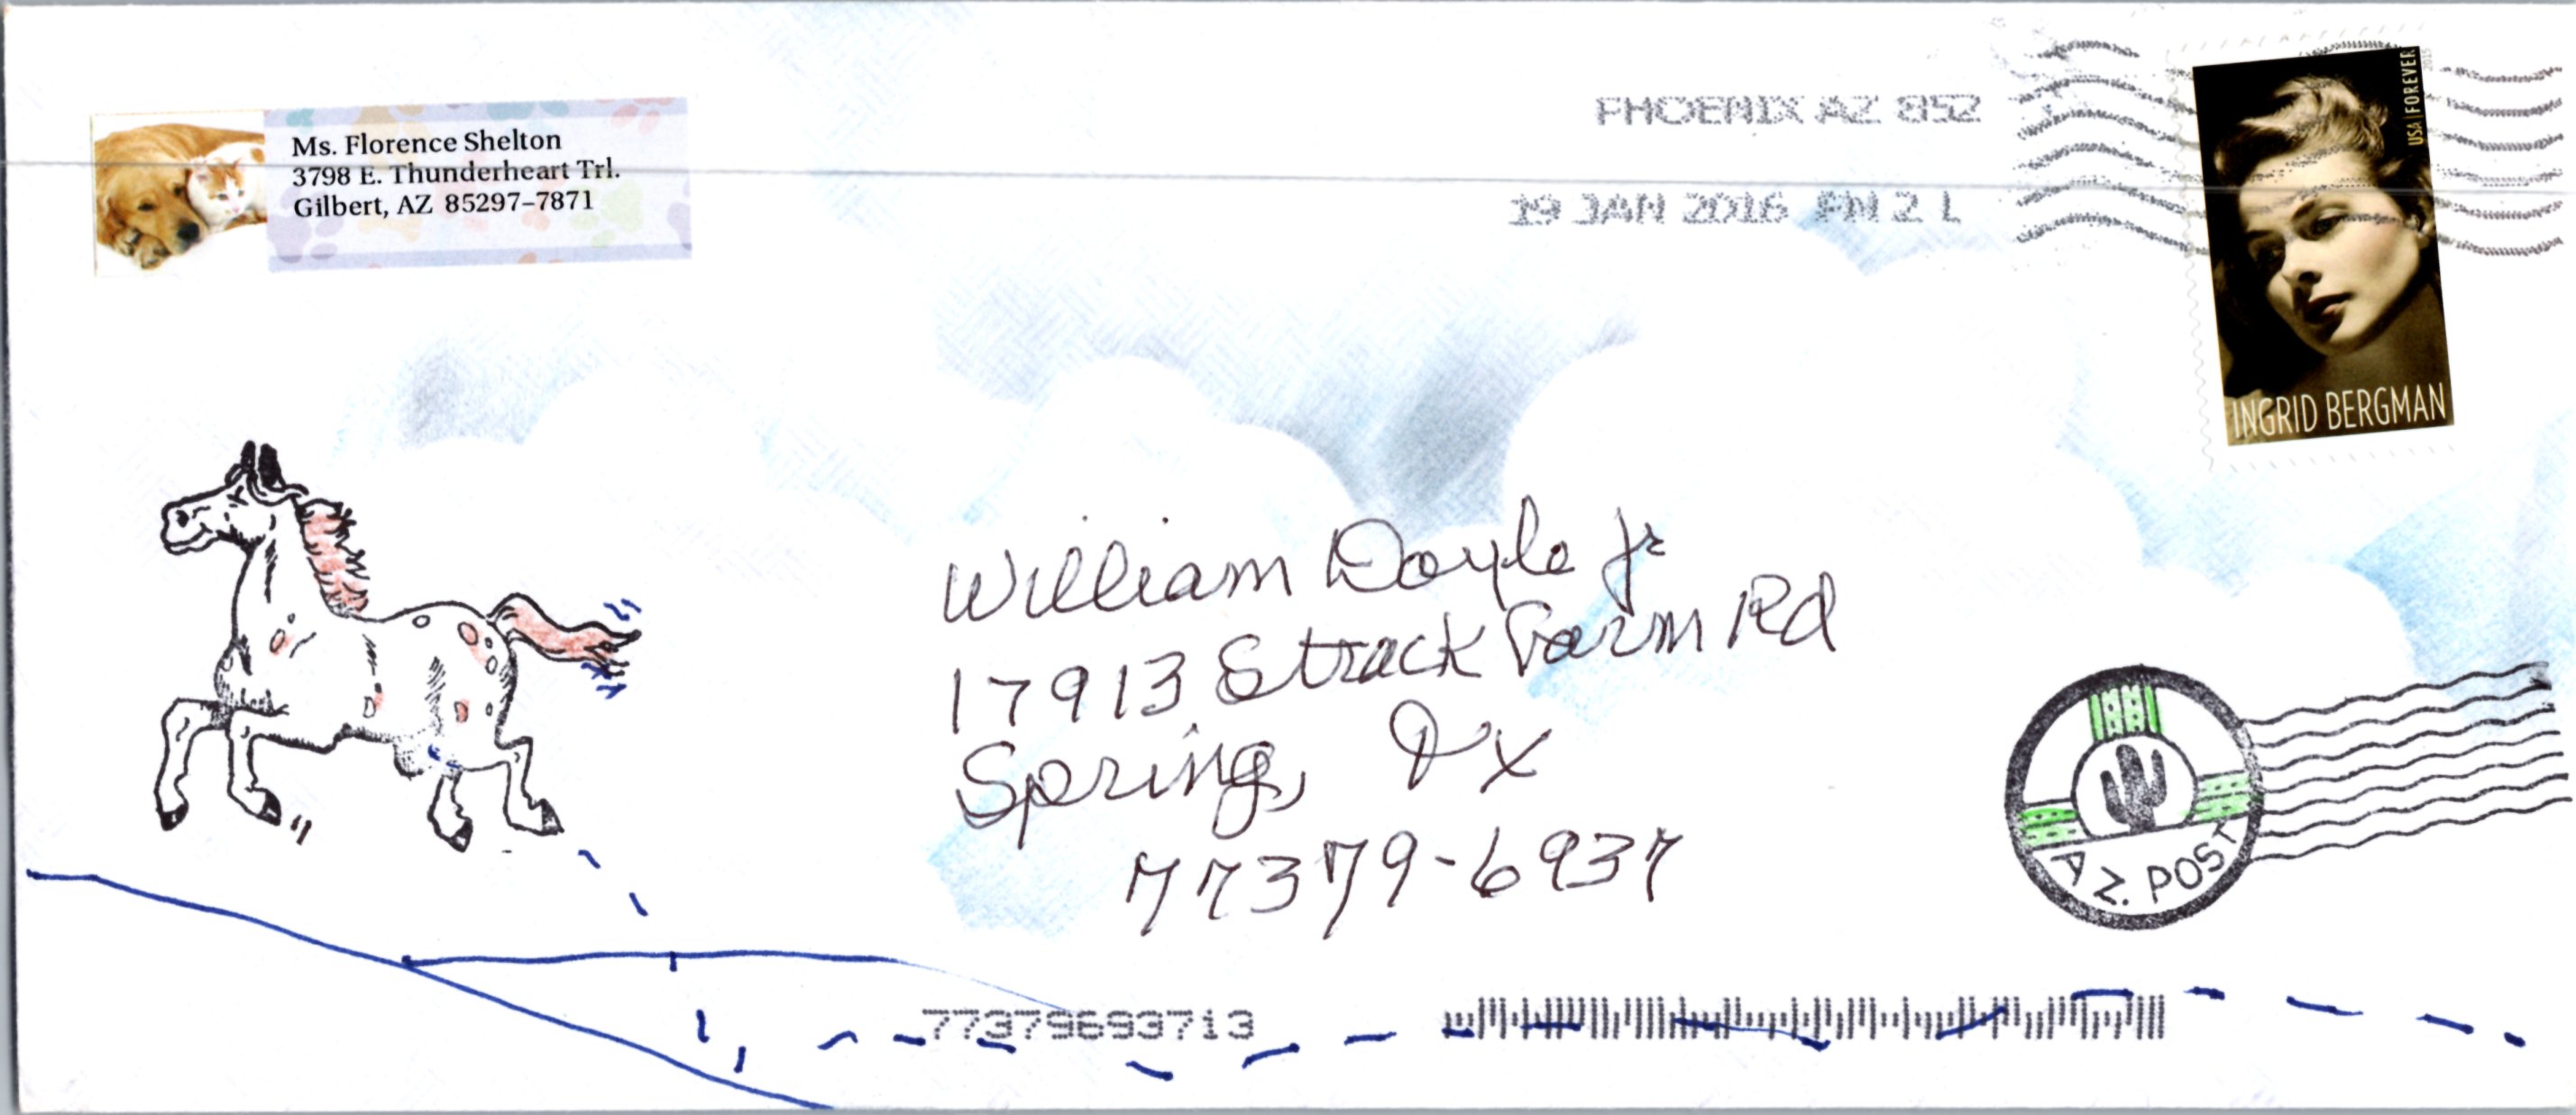 Ms. Florence Shelton
3798 E. Thunderheart Trl.
Gilbert, AZ 85297-7871
PHOENIX AZ 852
19 JAN 2016 PM 2 L
USA | FOREVER
2015
INGRID BERGMAN
William Doyle Jr
17913 Strack Farm Rd
Spring, Tx
77379-6937
AZ. POST
77379693713